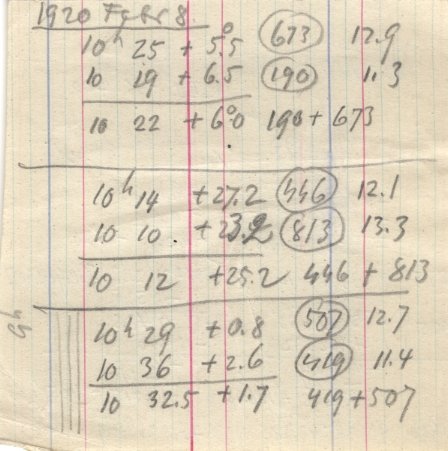 1920 Febr 8
10ʰ 25 + 5.°5 (673) 12.9
10 19 + 6.5 (190) 11.3
10 22 + 6.°0 190 + 673
10ʰ 14 + 27.2 (446) 12.1
10 10. + 23.2 (813) 13.3
10 12 + 25.2 446 + 813
10ʰ 29 + 0.8 (507) 12.7
10 36 + 2.6 (419) 11.4
10 32.5 + 1.7 419 + 507